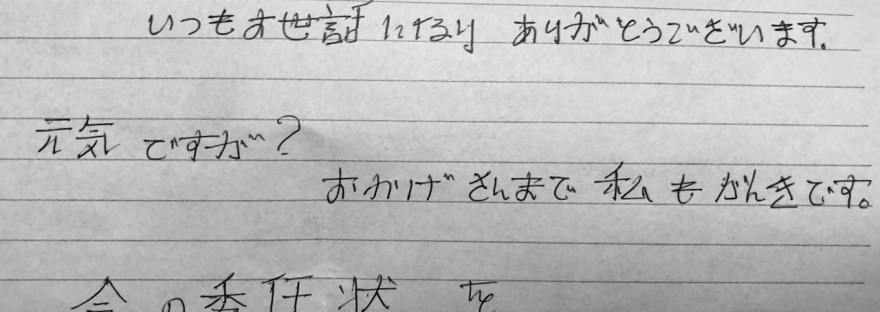 いつもお世話になり ありがとうございます。
元気ですが?
おかげさんまで 私も がんきです。
会の委任状 を